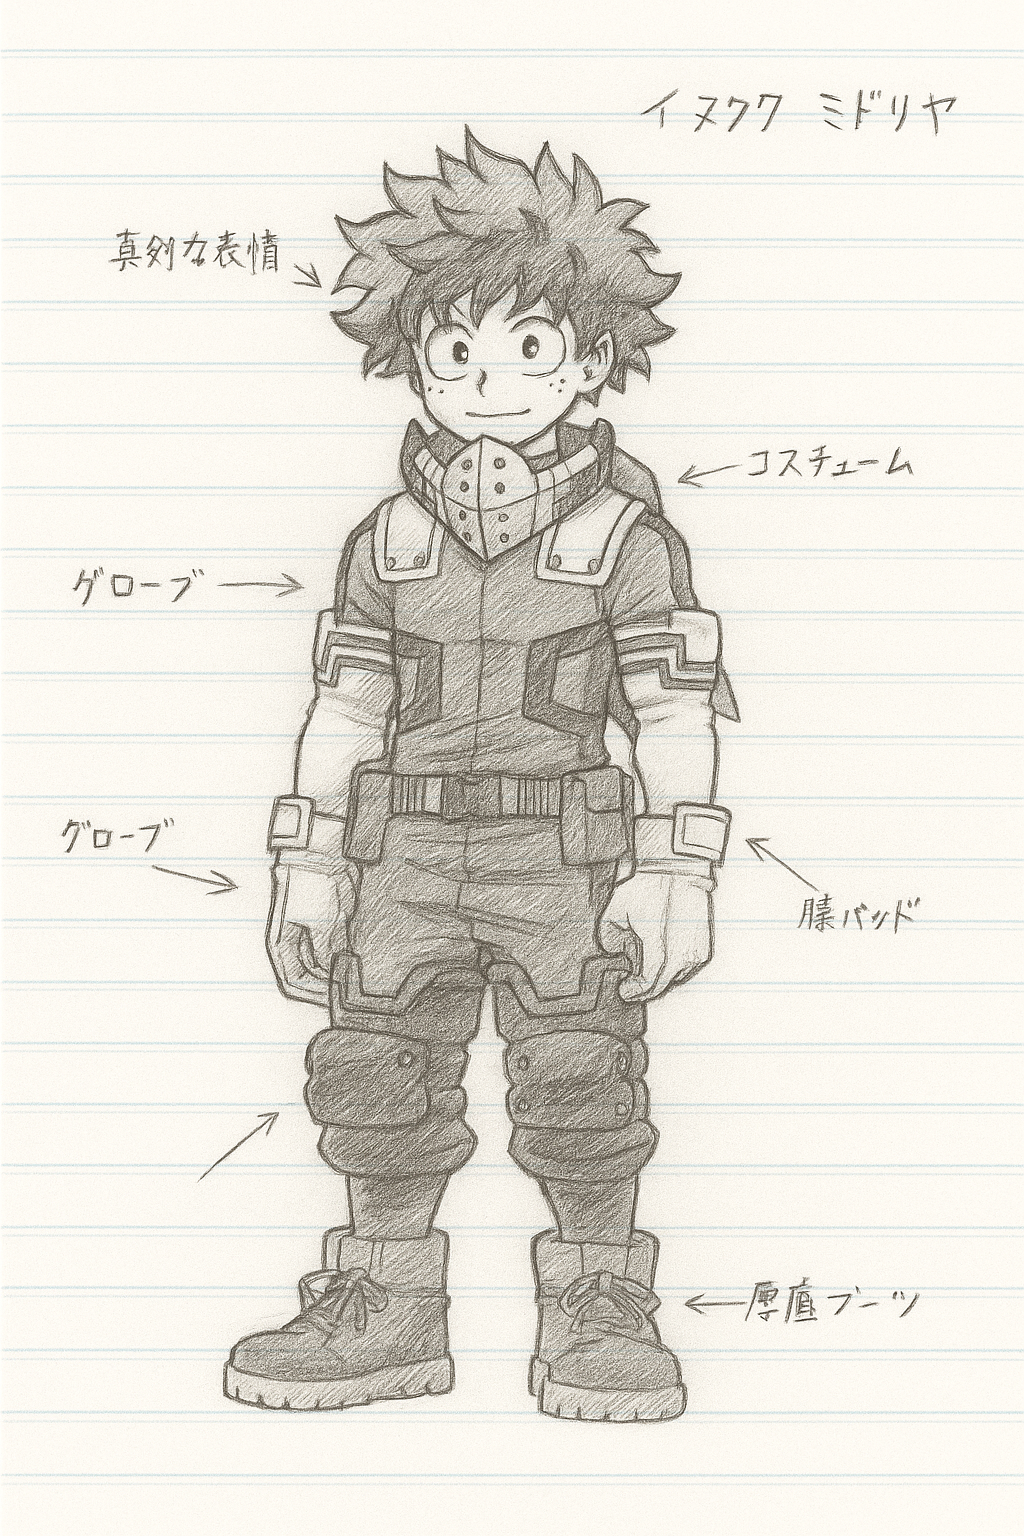 イヌクク ミドリヤ
真剣な表情
コスチューム
グローブ
グローブ
バンド
ブーツ